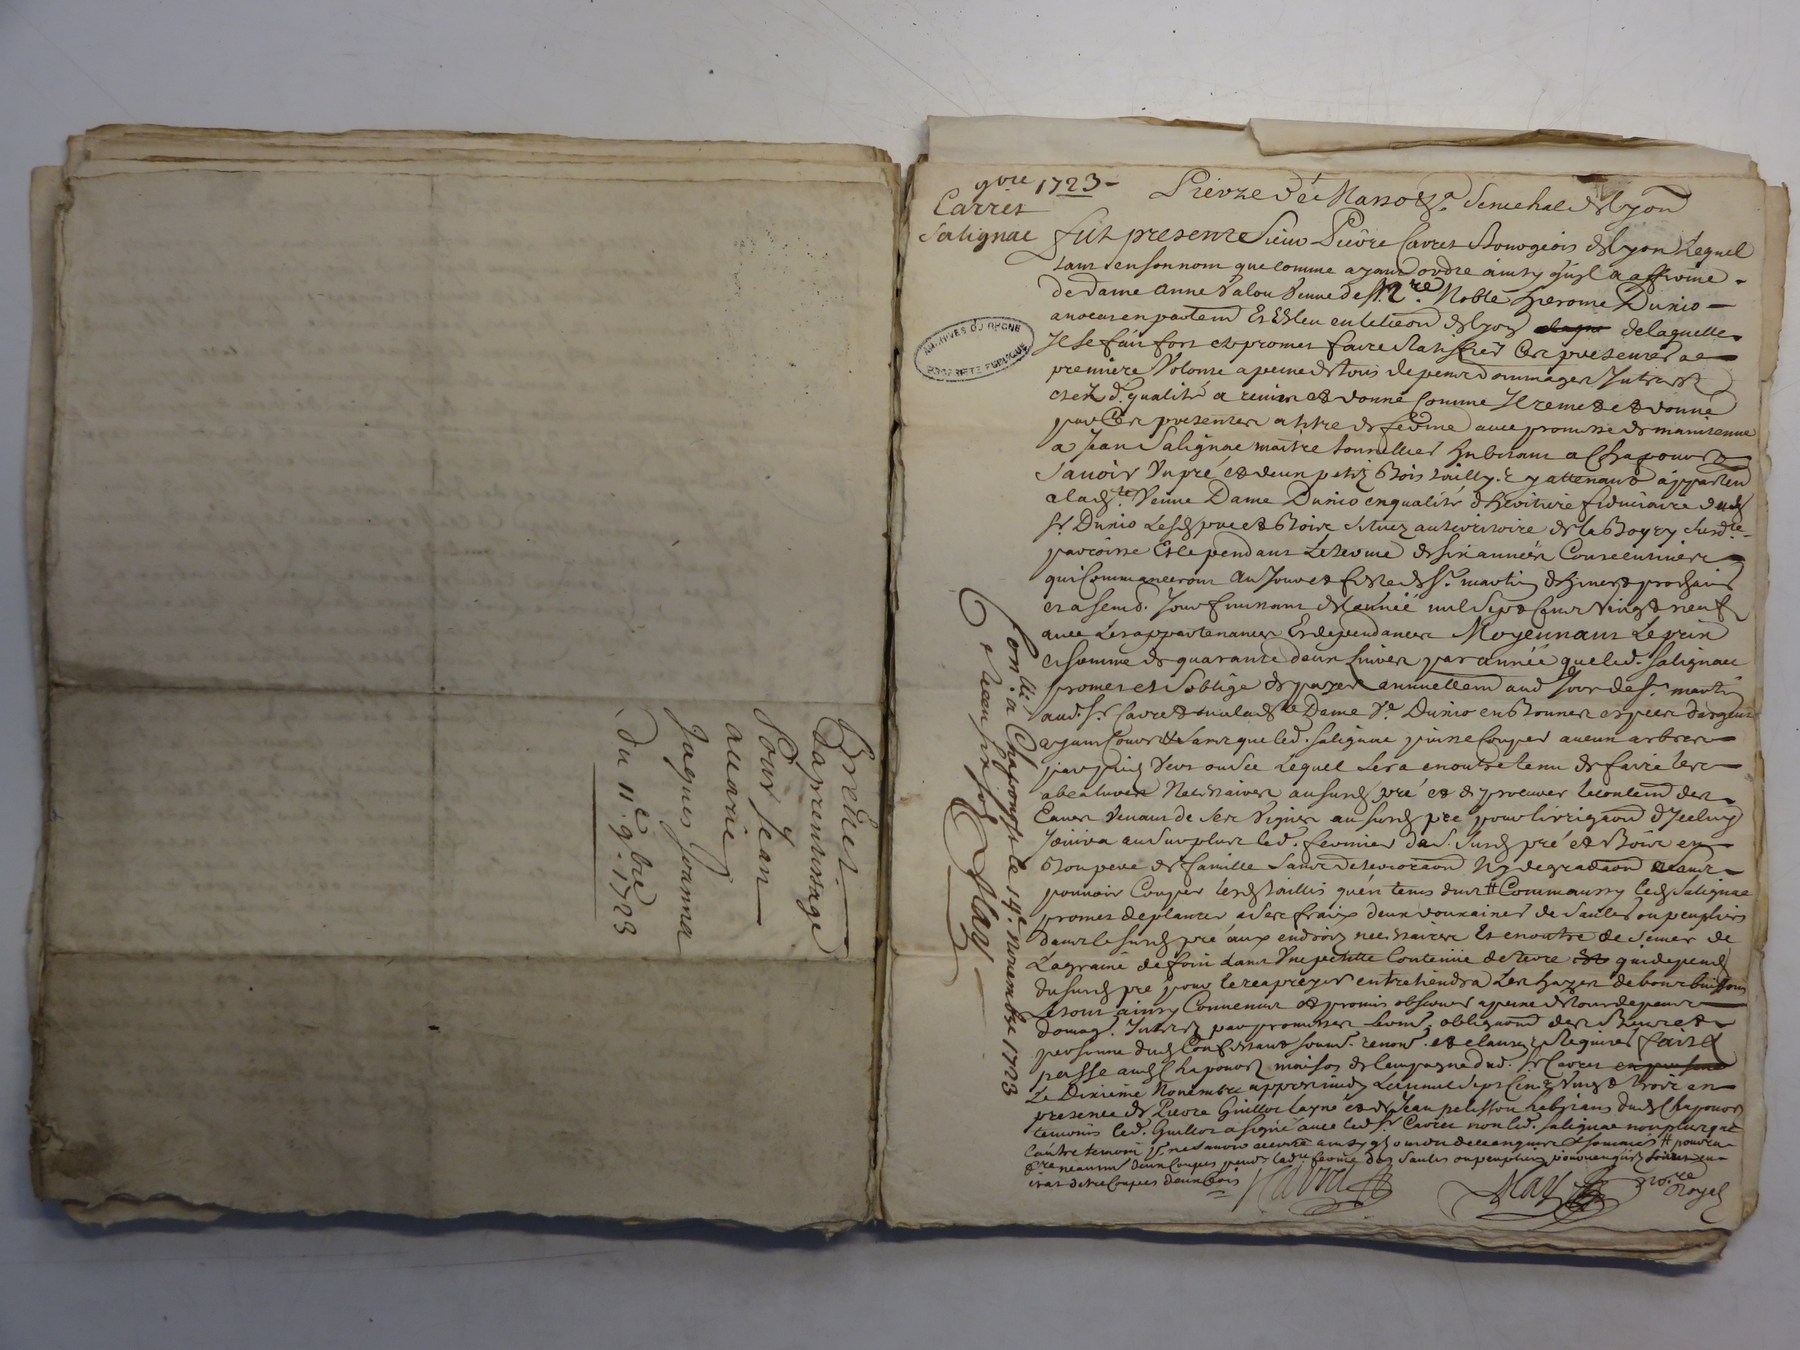 Brevet
Daprentissage
Pour Jean
auarie
Jaques Joanna
Du 11e 9bre 1723
9bre 1723
Carret
Salignac
ARCHIVES DU RHONE
PROPRIETE PUBLIQUE
Pierre de Masso Senechal de Lyon
fut present Sieur Pierre Carret Bourgeois de Lyon Lequel
tant en son nom que comme ayant ordre ainsy qu'il a affirmé
de Dame Anne Valou veuve de Noble hierome Dunio
avocat en parlem et Esleu en lelection de Lyon de laquelle
Il se fait fort et promet faire ratiffier ces presentes a
premiere volonté a peine de tous depens dommages Interest
a remis et donné comme Il remet et donne
par ces presentes a titre de ferme avec promesse de maintenue
a Jean Salignac maitre tonnellier habitant a Chaponost
Savoir un pré et d'un petit Bois y attenant apparten
a lad. veuve Dame Dunio en qualité d'heritiere fiduciaire dud.
Sr. Dunio Lesd. pré et Bois situez au territoire de la susd.
parroisse Et ce pendant Le terme de six années Consecutives
qui Commanceront au Jour et feste de St. martin d'hiver prochain
et a semb. Jour finissant de l'année mil sept cent vingt neuf
avec Les appartenances et dependances Moyennant Le prix
et somme de quarante deux Livres par année que led. Salignac
promet et s'oblige de payer annuellem aud. Jour de St. martin
aud. Sr. Carret ou a lad. Dame Ve. Dunio en Bonnes especes d'argent
ayant cours sans que led. Salignac puisse Couper aucun arbres
par pied vert ou sec Lequel sera en outre tenu de faire les
necessaires au susd. pré et de procurer
Eaues venant de ses vignes au susd. pré pour
Jouira au surplus led. fermier susd. pré et Bois en
Bon pere de famille sans deterioraon ny degradaon sans
pouvoir Couper lesd. taillis qu'en tems dut # Comm'aussy led. Salignac
promet de planter a ses fraix deux douxaines de saules ou peupliers
dans le susd. pré aux endrois necessaires Et en outre de semer de
La graine de foin dans une petitte Contenue de terre qui depend
du susd. pré pour entretiendra Les hayes de bons buissons
Le tout ainsy Convenu et promis observer a peine de tous depens
domag. Interest par promesses serm. obligaons des Biens et
personne soum. renon. et clauses Requises fait &
passé aud. Chaponost maison de Campagne dud. Sr. Carret
Le Dixieme Novembre apprès midy L'an mil sept Cent vingt trois en
presence de Pierre Guillot layné et de Jean pelisson habitans dud. Chaponost
temoins led. Guillot a signé avec led. Sr. Carret non led. Salignac non plus que
l'autre temoin
Carret
Royal
Conllé a Chaponost le 14e novembre 1723